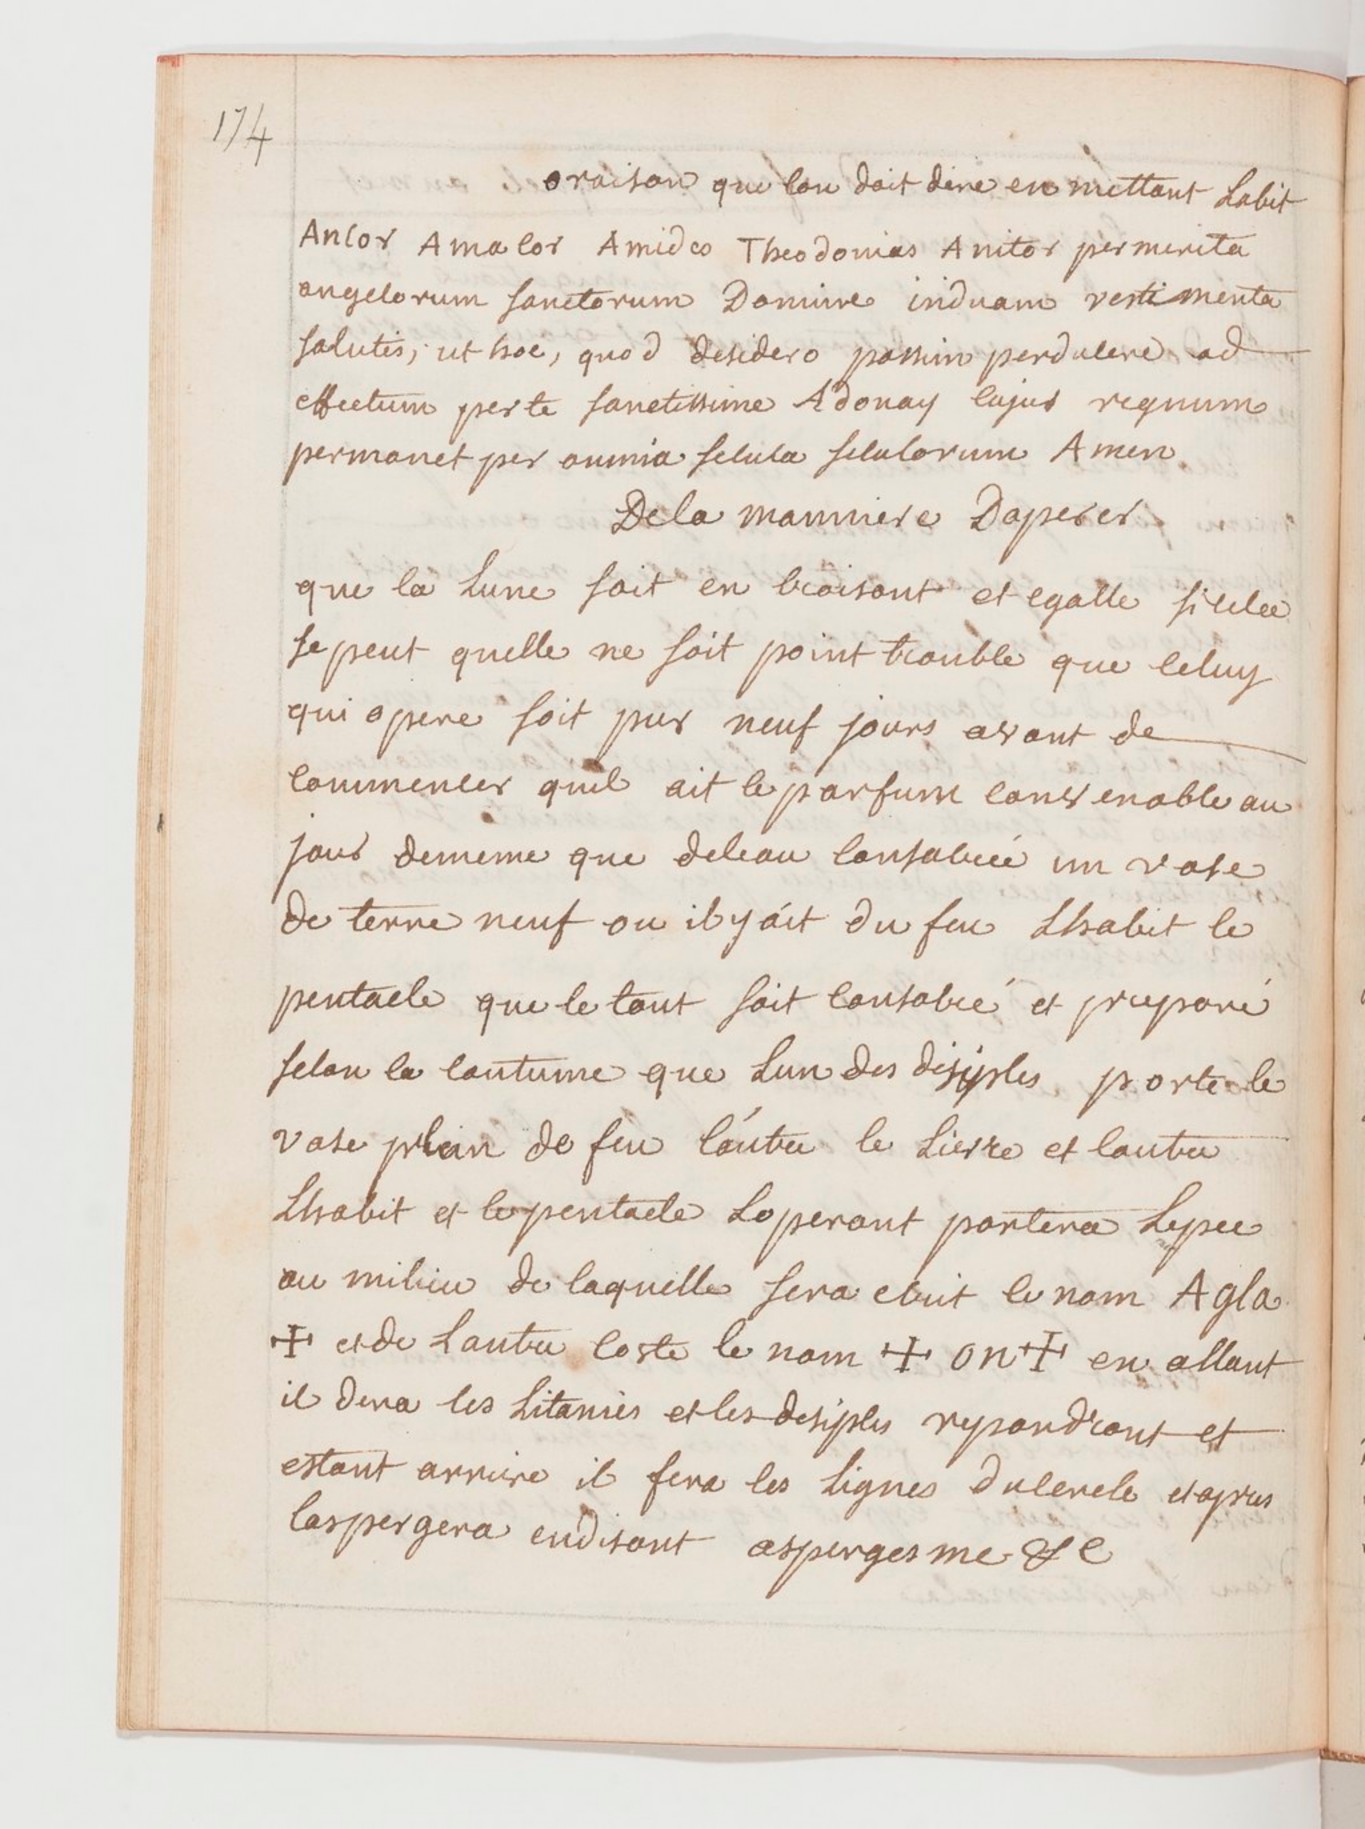 174
oraison que lon doit dire en mettant Labit
Ancor Amacor Amides Theodonias Anitor per merita
angelorum sanctorum Domine induam vestimenta
salutis, ut hoc, quod desidero possim perducere ad
effectum per te sanctissime Adonay cujus regnum
permanet per omnia secula seculorum Amen
De la manniere Doperer
que la Lune soit en croisant et egalle si cela
se peut quelle ne soit point trouble que celuy
qui opere soit pur neuf jours avant de
commencer quil ait le parfum convenable au
jour dememe que deleau consacrée un vase
de terre neuf ou il y áit du feu Lhabit le
pentacle que le tout soit consacré et preparé
selon la coutume que Lun des disiples porte le
vase plein de feu láutre le Livre et lautre
Lhabit et le pentacle Loperant portera Lepee
au milieu de laquelle sera ecrit le nom Agla
✝ et de Lautre coste le nom ✝ on ✝ en allant
il dira les Litanies et les disiples repondront et
estant arrive il fera les Lignes du cercle et apres
laspergera en disant asperges me &c